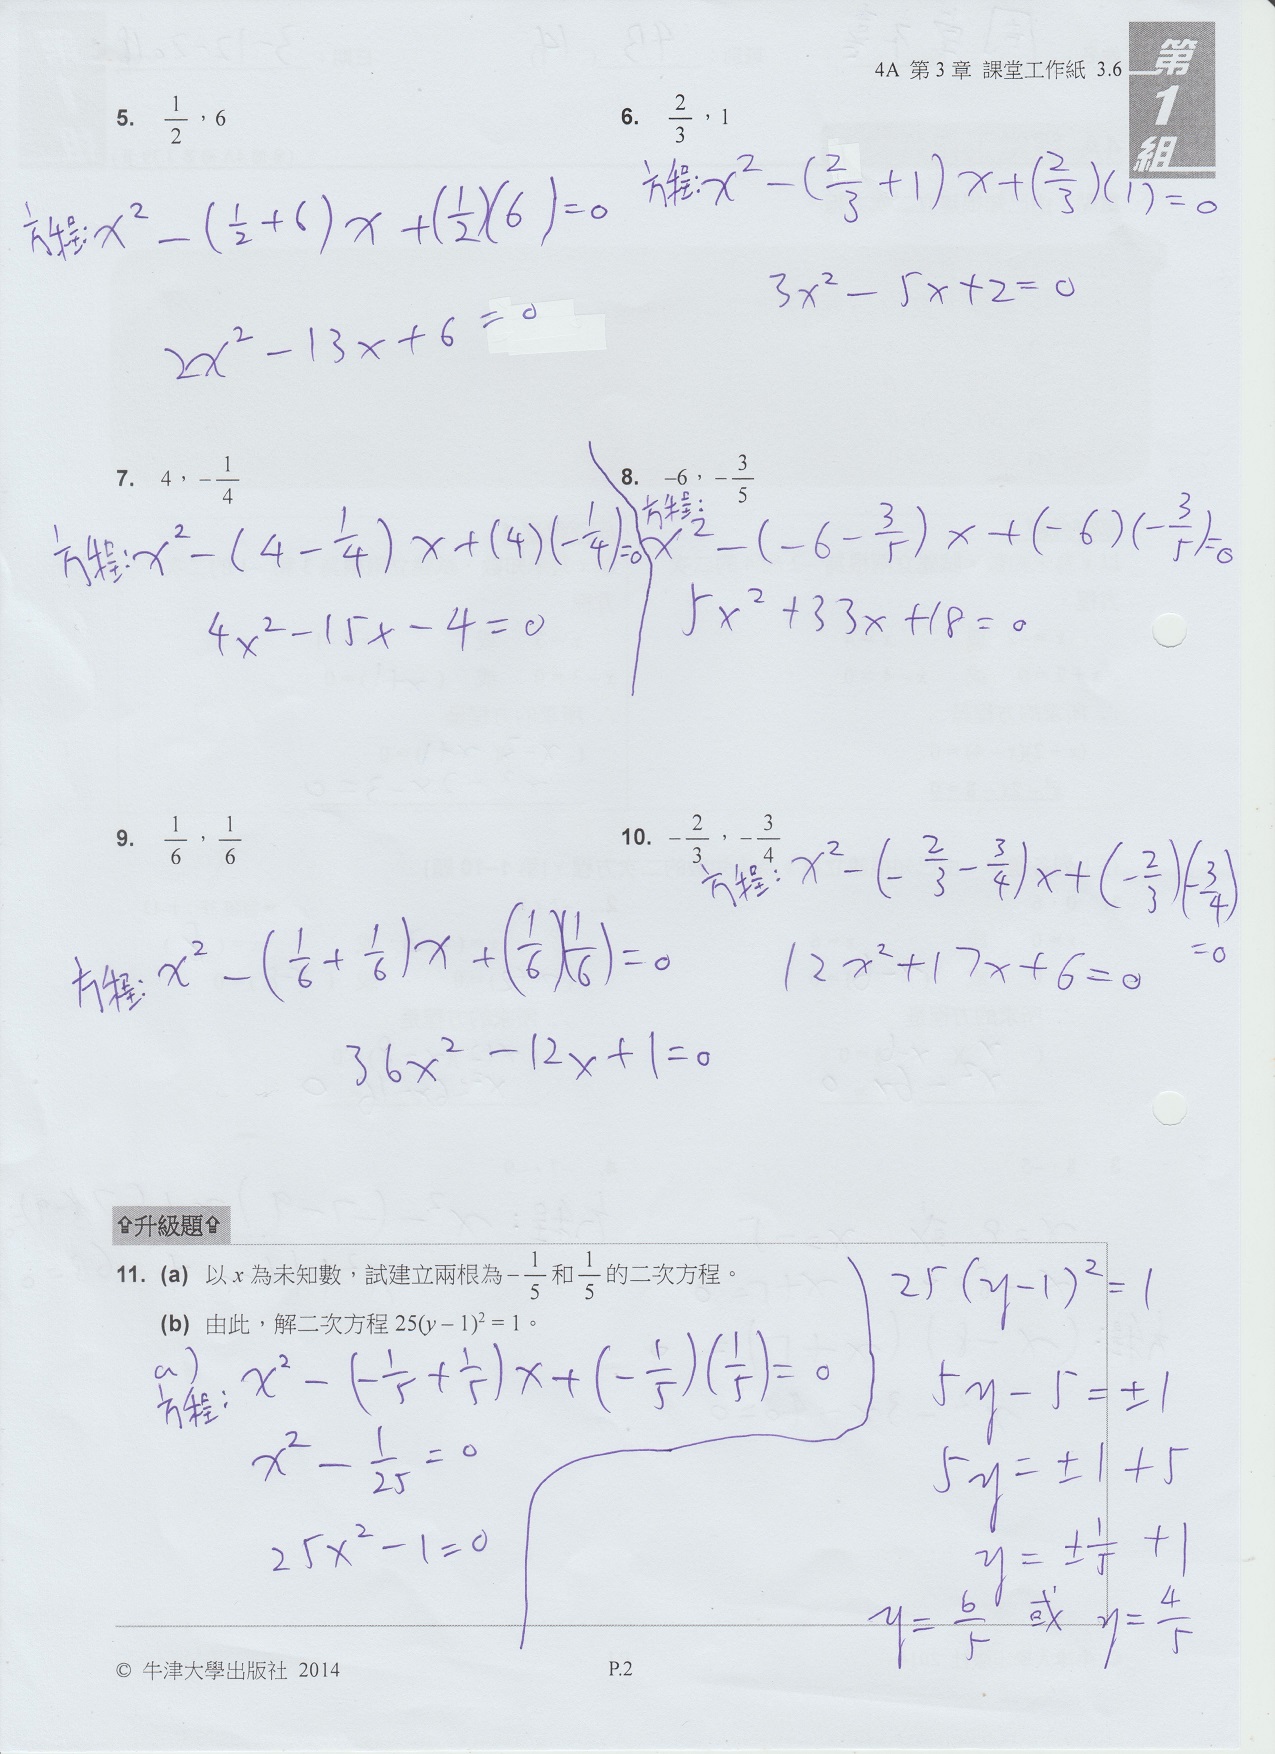 4A 第 3 章 課堂工作紙 3.6
第
1
組
5. 1/2，6
方程: x² - (1/2 + 6) x + (1/2)(6) = 0
2x² - 13x + 6 = 0
6. 2/3，1
方程: x² - (2/3 + 1) x + (2/3)(1) = 0
3x² - 5x + 2 = 0
7. 4，-1/4
方程: x² - (4 - 1/4) x + (4)(-1/4) = 0
4x² - 15x - 4 = 0
8. -6，-3/5
方程:
x² - (-6 - 3/5) x + (-6)(-3/5) = 0
5x² + 33x + 18 = 0
9. 1/6，1/6
方程: x² - (1/6 + 1/6) x + (1/6)(1/6) = 0
36x² - 12x + 1 = 0
10. -2/3，-3/4
方程: x² - (-2/3 - 3/4) x + (-2/3)(-3/4)
= 0
12x² + 17x + 6 = 0
⇧升級題⇧
11. (a) 以 x 為未知數，試建立兩根為 -1/5 和 1/5 的二次方程。
(b) 由此，解二次方程 25(y – 1)² = 1。
a)
方程: x² - (-1/5 + 1/5) x + (-1/5)(1/5) = 0
x² - 1/25 = 0
25x² - 1 = 0
25(y - 1)² = 1
5y - 5 = ±1
5y = ±1 + 5
y = ±1/5 + 1
y = 6/5 或 y = 4/5
© 牛津大學出版社 2014
P.2